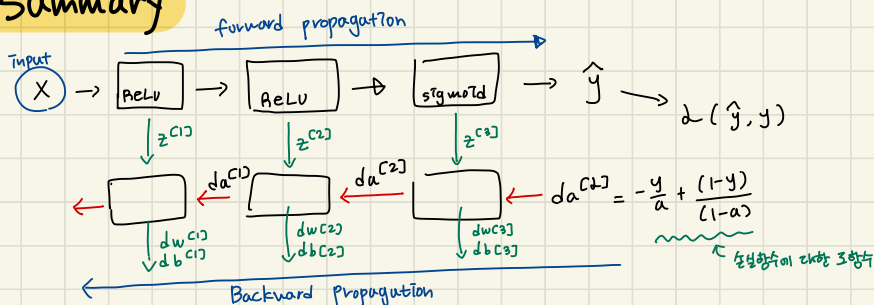 Summary
forward propagation
input
X → ReLU → ReLU → sigmoid → ŷ → L(ŷ, y)
z[1] z[2] z[3]
da[1] da[2] da[L] = -y/a + (1-y)/(1-a)
dw[1] dw[2] dw[3]
db[1] db[2] db[3]
손실함수에 대한 도함수
Backward propagation